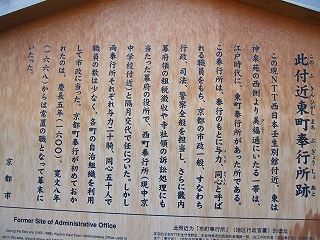 此付近東町奉行所跡
この現NTT西日本壬生別館付近、東は
神泉苑の西側より美福通にいたる一帯は、
江戸時代に、東町奉行所があった所である。
この奉行所は、奉行のもとに与力、同心と呼ば
れる職員をもち、京都の市政一般、すなわち
行政、司法、警察全般を担当し、さらに畿内
幕府領の租税徴収や寺社領の訴訟処理にも
当たった幕府の役所で、西町奉行所(現中京
中学校付近)と隔月交代で任についた。しかし
両奉行所それぞれ与力二十騎、同心五十人で
職員の数は少なく、各町の自治組織を利用
して市政に当った。京都町奉行が初めておか
れたのは、慶長五年(一六〇〇)、寛文八年
(一六六八)からは常置の職となって幕末に
いたった。
京都市
Former Site of Administrative Office